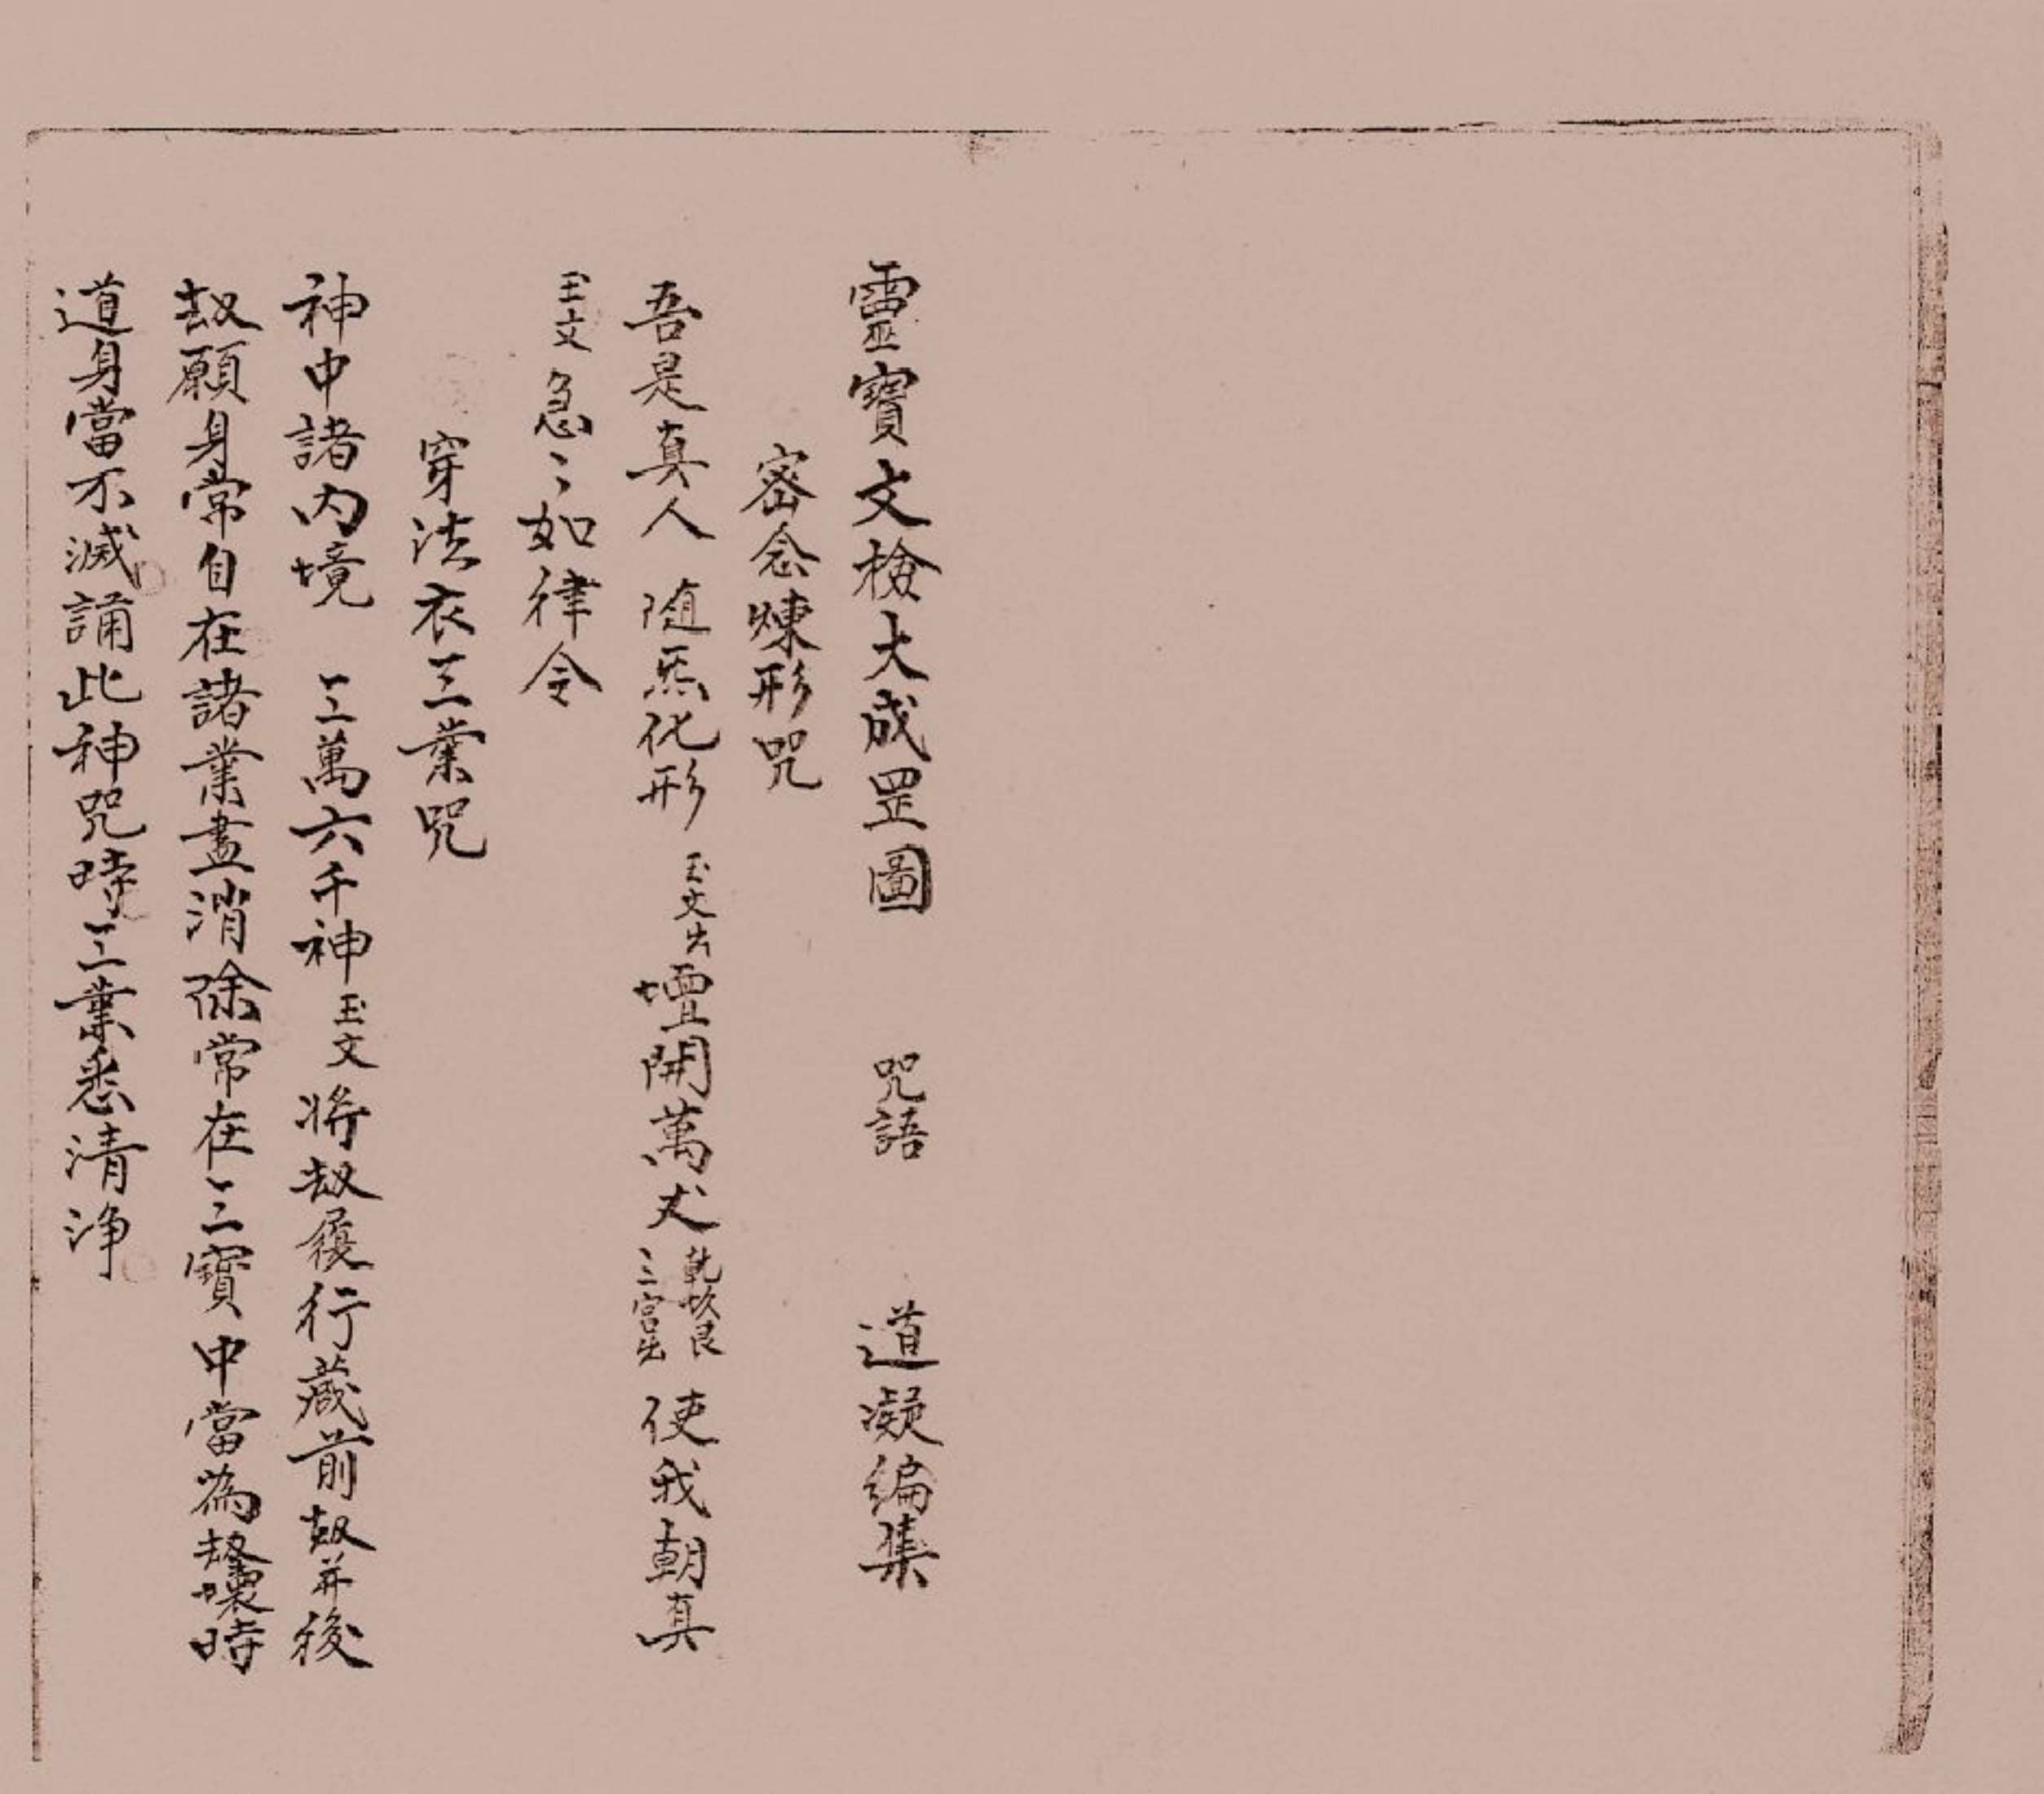 靈寶文檢大成罡圖 咒語 道凝編集
密念煉形咒
吾是真人 随炁化形 玉文出壇開萬丈 乾坎艮三宮出 使我朝真
玉文 急〻如律令
穿法衣三業咒
神中諸内境 三萬六千神 玉文 将劫履行藏前劫并後
劫願身常自在諸業盡消除常在三寶中當為劫壞時
道身當不滅誦此神咒時三業悉清淨